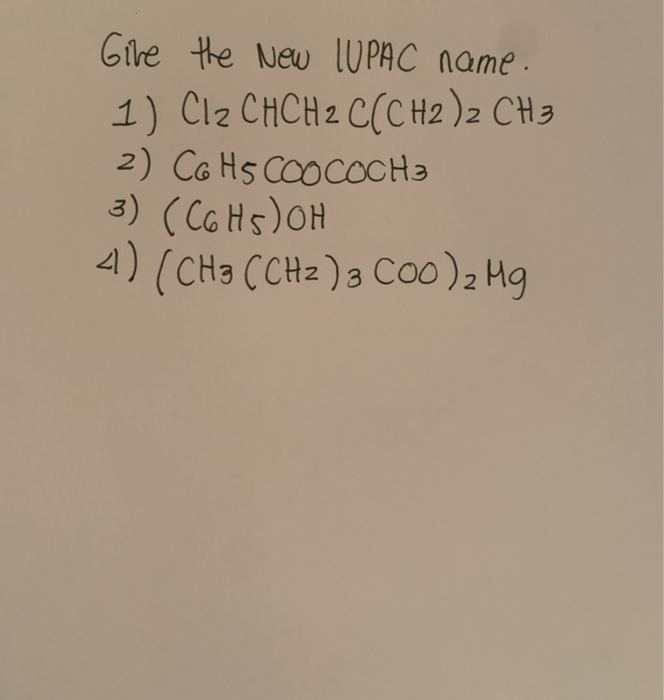 Give the New IUPAC name.
1) Cl2 CHCH2 C(CH2)2 CH3
2) C6 H5 COOCOCH3
3) (C6 H5)OH
4) (CH3 (CH2)3 COO)2 Mg